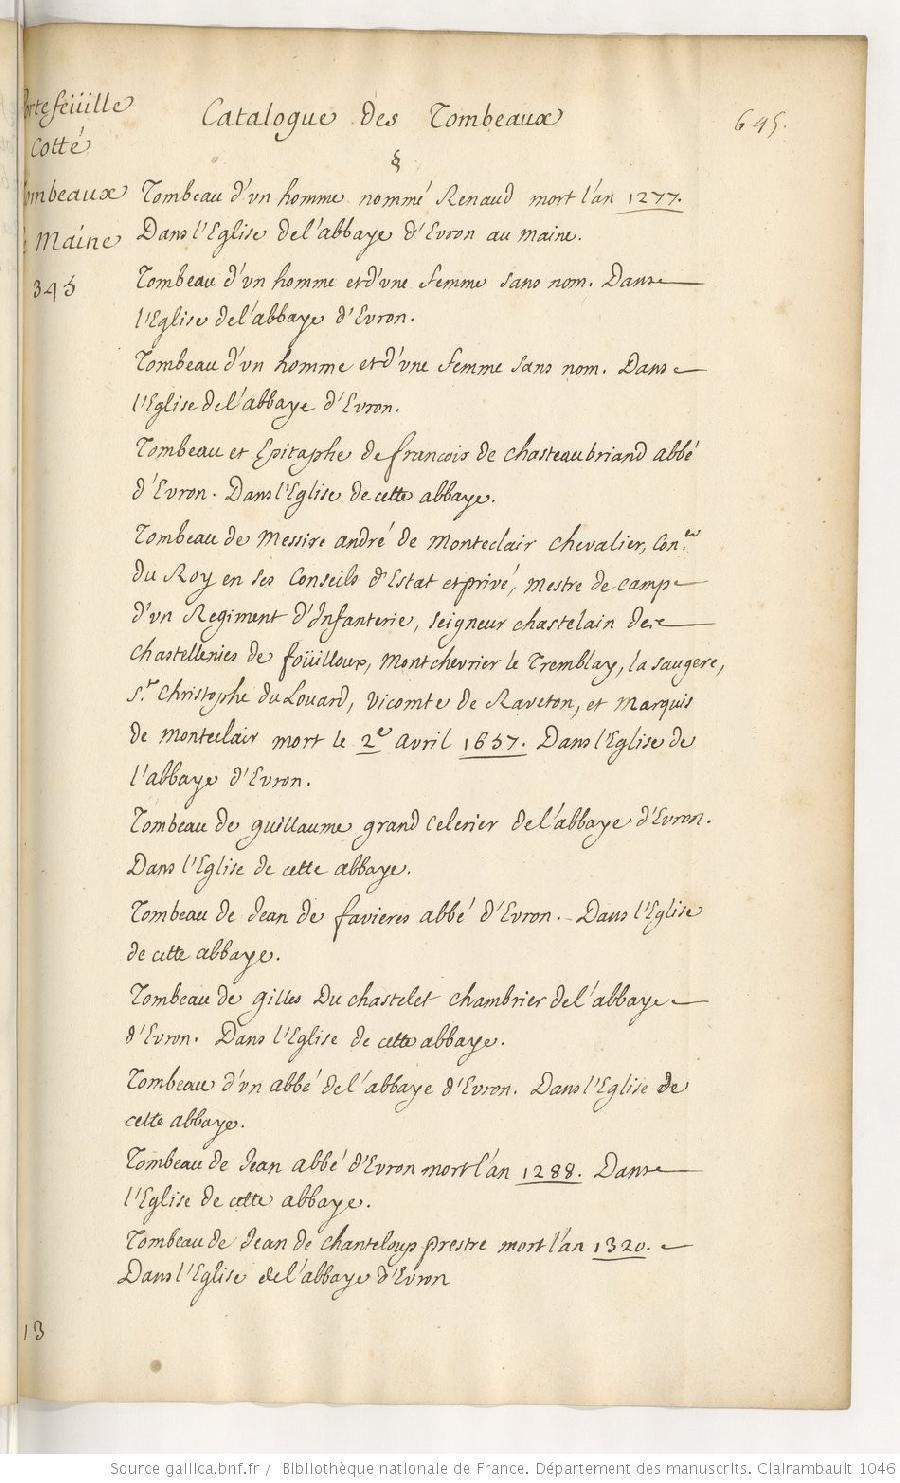 ortefeüille
Cotté
ombeaux
Maine
345
Catalogue des Tombeaux
645.
§
Tombeau d'vn homme nommé Renaud mort l'an 1277.
Dans l'Eglise de l'abbaye d'Evron au maine.
Tombeau d'vn homme et d'vne femme sans nom. Dans
l'Eglise de l'abbaye d'Evron.
Tombeau d'vn homme et d'vne femme sans nom. Dans
l'Eglise de l'abbaye d'Evron.
Tombeau et Epitaphe de francois de chasteaubriand abbé
d'Evron. Dans l'Eglise de cette abbaye.
Tombeau de Messire andré de Monteclair chevalier, Con.er
du Roy en ses Conseils d'Estat et privé, mestre de camp
d'vn Regiment d'Infanterie, seigneur chastelain des
chastellenies de foüilloux, Montchevrier le Tremblay, la saugere,
s.t christophe du Louard, vicomte de Raveton, et marquis
de monteclair mort le 2.e avril 1657. Dans l'Eglise de
l'abbaye d'Evron.
Tombeau de guillaume grand celerier de l'abbaye d'Evron.
Dans l'Eglise de cette abbaye.
Tombeau de Jean de favieres abbé d'Evron. Dans l'Eglise
de cette abbaye.
Tombeau de gilles Du chastelet chambrier de l'abbaye
d'Evron. Dans l'Eglise de cette abbaye.
Tombeau d'vn abbé de l'abbaye d'Evron. Dans l'Eglise de
cette abbaye.
Tombeau de Jean abbé d'Evron mort l'an 1288. Dans
l'Eglise de cette abbaye.
Tombeau de Jean de chanteloup prestre mort l'an 1320.
Dans l'Eglise de l'abbaye d'Evron
13
Source gallica.bnf.fr / Bibliothèque nationale de France. Département des manuscrits. Clairambault 1046